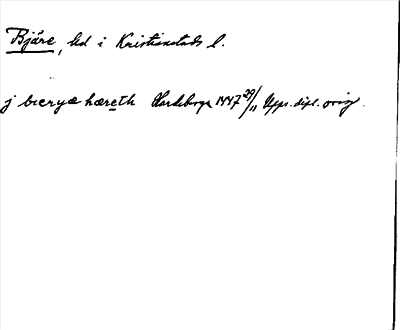 Bjäre, hd i Kristianstads l.
j biæryæ hæreth Skarleborga 1447 29/11 Upps. dipl. orig.